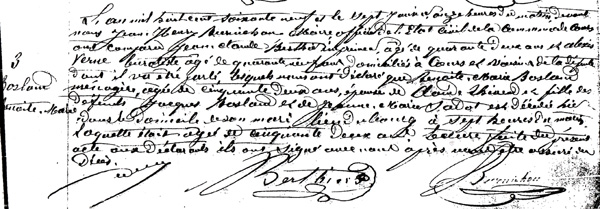 3
Bosland
L'an mil huit cent soixante neuf et le sept Janvier onze heures du matin devant
nous Jean Henry maire officier de l'Etat Civil de la Commune de Cours
ont comparu Jean Claude Berthier agé de quarante deux ans et
Verne agé de quarante domiciliés à Cours et voisins de la
dont il va être parlé, lesquels nous ont déclaré que Benoite Marie Bosland
ménagère, agée de cinquante deux ans, épouse de Claude et fille des
défunts Jacques Bosland et de Jeanne Marie est décédée hier
dans le domicile de son mari à sept heures du matin
laquelle était agée de cinquante deux ans. Lecture faite du présent
acte aux déclarants ils ont signé avec nous après nous être assuré du
Décès.
Berthier